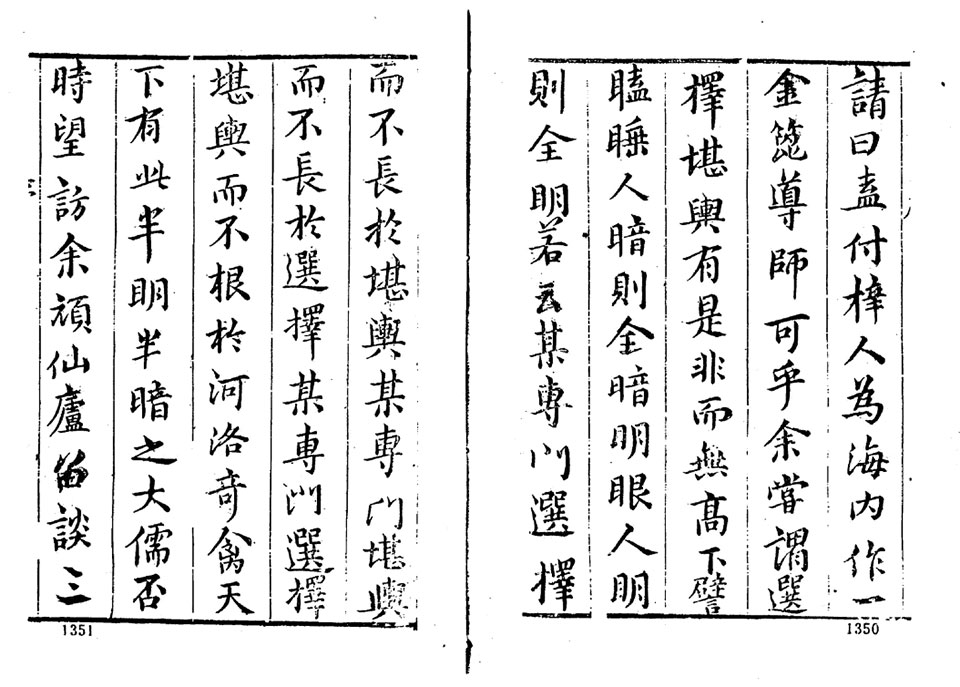 請曰盍付梓人為海内作一
金箆導師可乎余嘗謂選
擇堪輿有是非而無高下譬
瞌睡人暗則全暗明眼人明
則全明若云某專門選擇
1350
而不長於堪輿某專門堪輿
而不長於選擇某專門選擇
堪輿而不根於河洛奇禽天
下有此半明半暗之大儒否
時望訪余頑仙廬留談三
1351